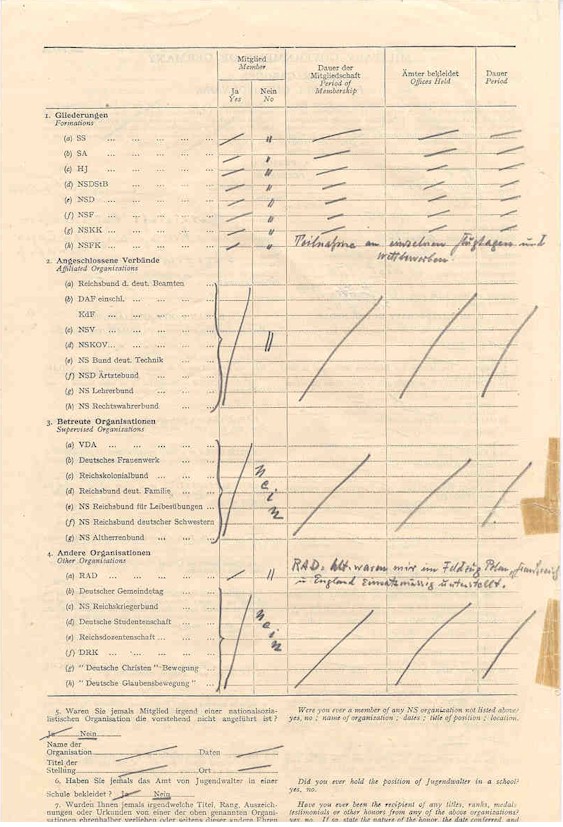 Mitglied
Member
Dauer der Mitgliedschaft
Period of Membership
Ämter bekleidet
Offices Held
Dauer
Period
Ja
Yes
Nein
No
1. Gliederungen
Formations
(a) SS ... ... ... ... ... "
(b) SA ... ... ... ... ... "
(c) HJ ... ... ... ... ... "
(d) NSDStB ... ... ... ... "
(e) NSD ... ... ... ... ... "
(f) NSF ... ... ... ... ... "
(g) NSKK ... ... ... ... "
(h) NSFK ... ... ... ... " Teilnahme an einzelnen Flugtagen und
Wettbewerben.
2. Angeschlossene Verbände
Affiliated Organisations
(a) Reichsbund d. deut. Beamten
(b) DAF einschl. ... ... ...
KdF ... ... ... ...
(c) NSV ... ... ... ...
(d) NSKOV... ... ... ... "
(e) NS Bund deut. Technik ...
(f) NSD Ärztebund ... ...
(g) NS Lehrerbund ... ...
(h) NS Rechtswahrerbund ...
3. Betreute Organisationen
Supervised Organisations
(a) VDA ... ... ... ...
(b) Deutsches Frauenwerk ...
(c) Reichskolonialbund ...
(d) Reichsbund deut. Familie ...
(e) NS Reichsbund für Leibesübungen ...
(f) NS Reichsbund deutscher Schwestern
(g) NS Altherrenbund ...
Nein
4. Andere Organisationen
Other Organisations
(a) RAD ... ... ... ... " RAD: Abt. waren mir im Feldzug Polen, Frankreich
u England Einsatzmässig unterstellt.
(b) Deutscher Gemeindetag
(c) NS Reichskriegerbund ...
(d) Deutsche Studentenschaft
(e) Reichsdozentenschaft ...
(f) DRK ... ... ... ...
(g) "Deutsche Christen"-Bewegung
(h) "Deutsche Glaubensbewegung"
Nein
5. Waren Sie jemals Mitglied irgend einer nationalsozia-
listischen Organisation die vorstehend nicht angeführt ist?
Were you ever a member of any NS organization not listed above
yes, no; name of organization; dates; title of position; location.
Ja Nein
Name der
Organisation Daten
Titel der
Stellung Ort
6. Haben Sie jemals das Amt von Jugendwalter in einer
Schule bekleidet? Ja Nein
Did you ever hold the position of Jugendwalter in a school
yes, no.
7. Wurden Ihnen jemals irgendwelche Titel, Rang, Auszeich-
nungen oder Urkunden von einer der oben genannten Organi-
sationen ehrenhalber verliehen oder seitens dieser andere Ehren
Have you ever been the recipient of any titles, ranks, medals
testimonials or other honors from any of the above organizations?
yes, no. If so, state the nature of the honor, the date conferred, and